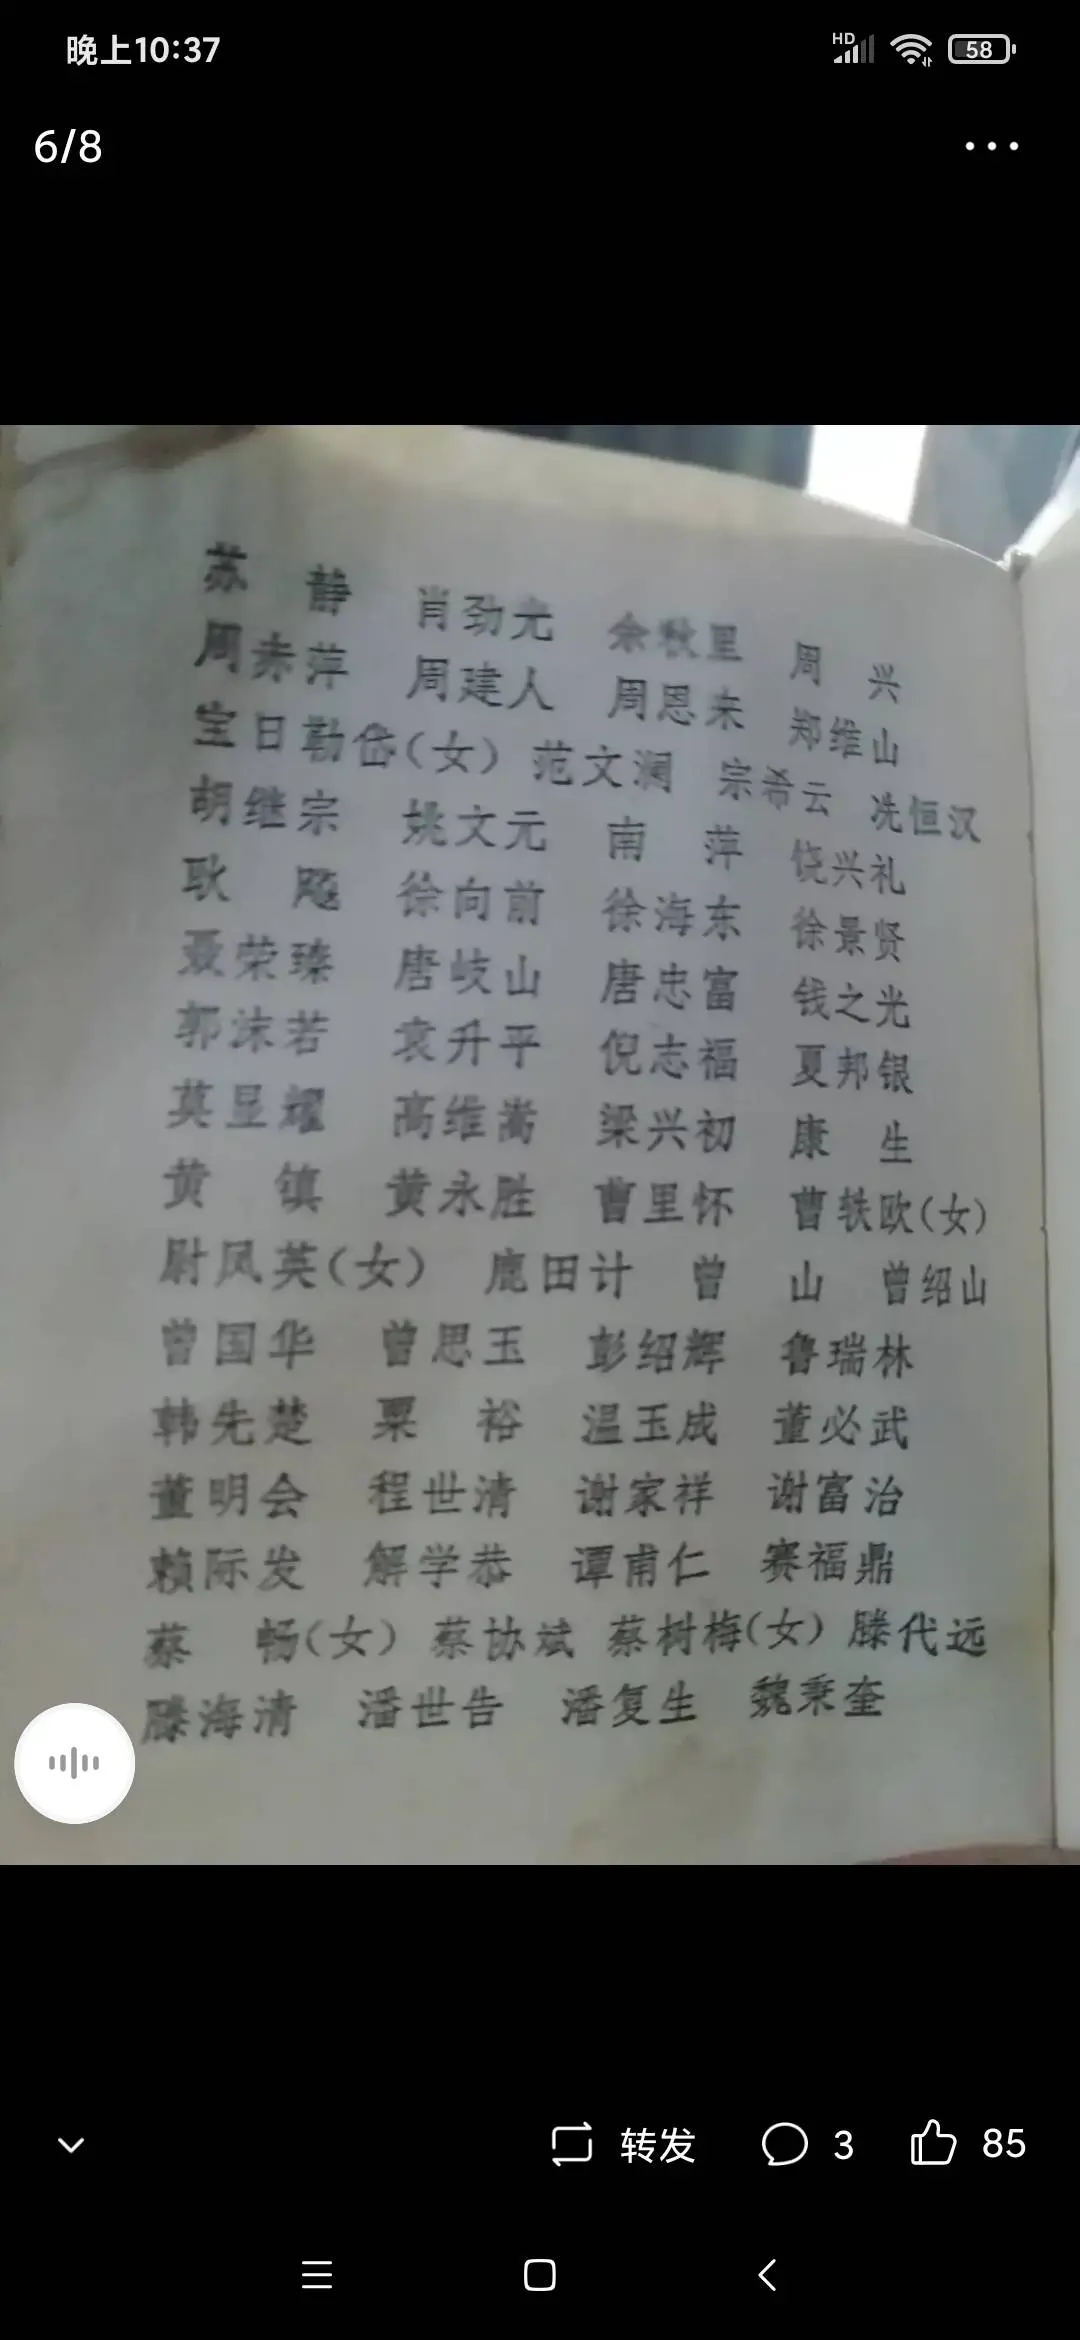 晚上10:37
HD
58
6/8
苏 静 肖劲光 余秋里 周 兴
周赤萍 周建人 周恩来 郑维山
宝日勒岱(女) 范文澜 宗希云 冼恒汉
胡继宗 姚文元 南 萍 饶兴礼
耿 飚 徐向前 徐海东 徐景贤
聂荣臻 唐岐山 唐忠富 钱之光
郭沫若 袁升平 倪志福 夏邦银
莫显耀 高维嵩 梁兴初 康 生
黄 镇 黄永胜 曹里怀 曹轶欧(女)
尉凤英(女) 鹿田计 曾 山 曾绍山
曾国华 曾思玉 彭绍辉 鲁瑞林
韩先楚 粟 裕 温玉成 董必武
董明会 程世清 谢家祥 谢富治
赖际发 解学恭 谭甫仁 赛福鼎
蔡 畅(女) 蔡协斌 蔡树梅(女) 滕代远
滕海清 潘世告 潘复生 魏秉奎
转发 3 85